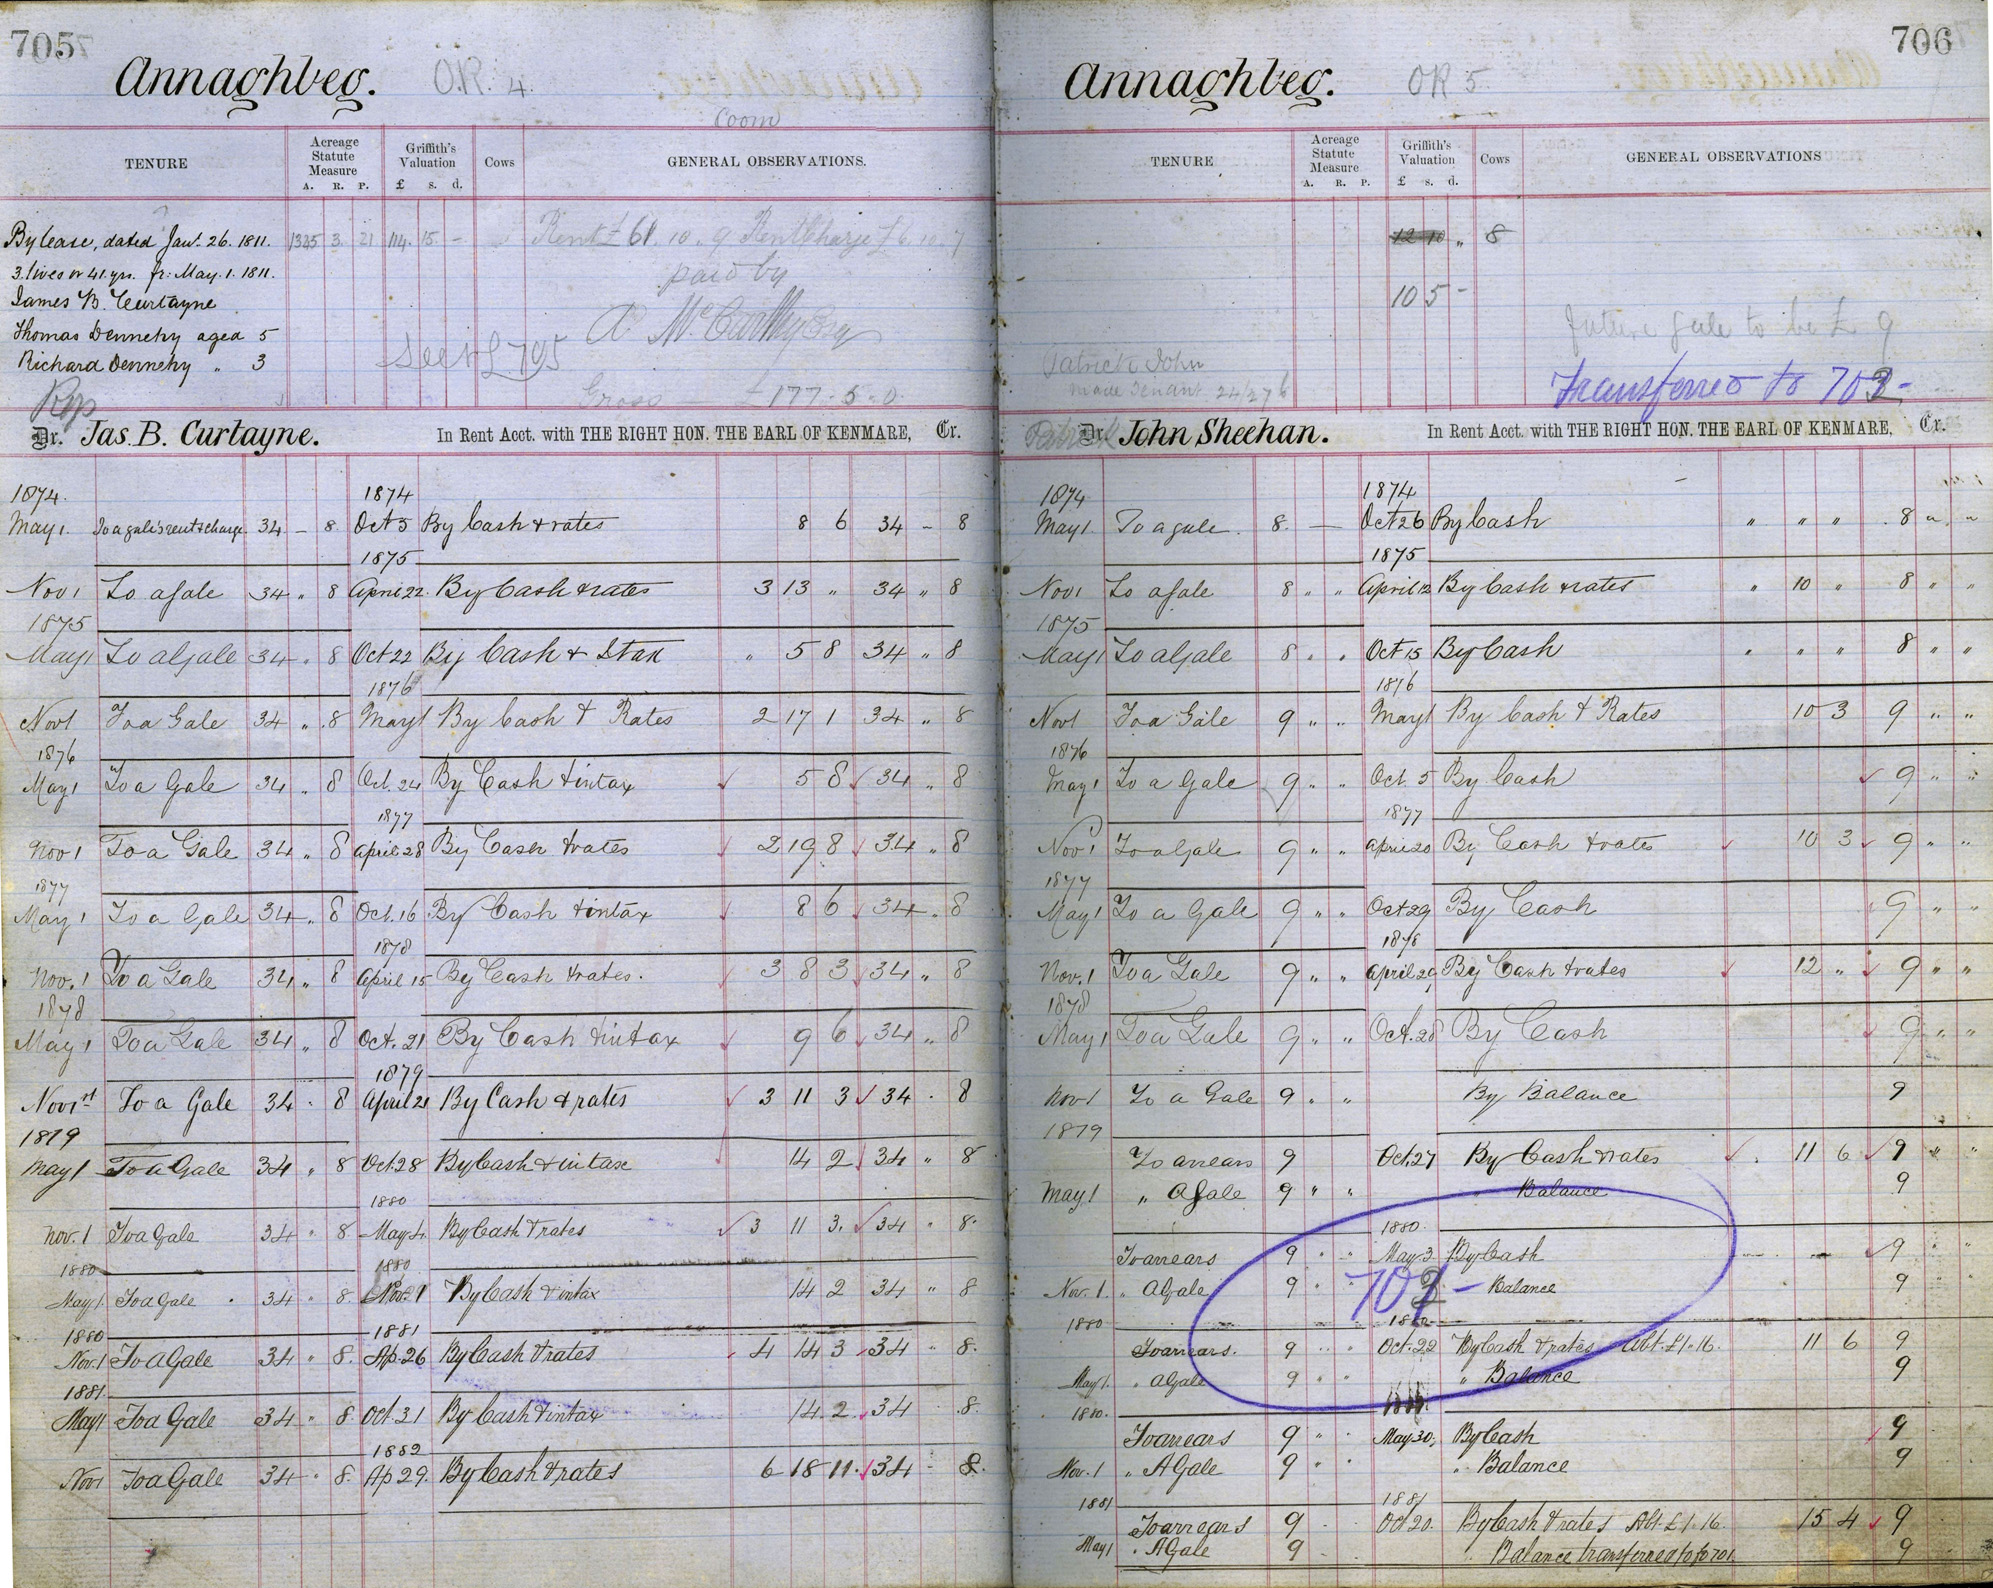 705
Annaghbeg. O.R. 4.
Coom
TENURE
Acreage Statute Measure A. R. P.
Griffith's Valuation £ s. d.
Cows
GENERAL OBSERVATIONS.
By lease, dated Jany. 26. 1811. 1325 3 21 114 15 - Rent £ 61. 10. 9 Rent Charge £ 6. 10. 7
3 lives or 41 yrs. fr: May. 1. 1811. paid by
James B. Curtayne
Thomas Dennehy aged 5
Richard Dennehy " 3
Gross £177. 5. 0
Dr. Jas. B. Curtayne. In Rent Acct. with THE RIGHT HON. THE EARL OF KENMARE, Cr.
1874. 1874
May 1. To a gale's rent & charge 34 - 8 Oct 5 By Cash & rates 8 6 34 - 8
1875
Nov 1 To a Gale 34 " 8 April 22. By Cash & rates 3 13 " 34 " 8
1875
May 1 To a Gale 34 " 8 Oct 22 By Cash & Itax " 5 8 34 " 8
1876
Nov 1 To a Gale 34 " 8 May 1 By Cash & Rates 2 17 1 34 " 8
1876
May 1 To a Gale 34 " 8 Oct. 24 By Cash & intax 5 8 34 " 8
1877
Nov 1 To a Gale 34 " 8 April 28 By Cash & rates 2 19 8 34 " 8
1877
May 1 To a Gale 34 " 8 Oct. 16 By Cash & intax 8 6 34 " 8
1878
Nov. 1 To a Gale 34 " 8 April 15 By Cash & rates. 3 8 3 34 " 8
1878
May 1 To a Gale 34 " 8 Oct. 21 By Cash & intax 9 6 34 " 8
1879
Nov 1st To a Gale 34 . 8 April 21 By Cash & rates 3 11 3 34 . 8
1879
May 1 To a Gale 34 " 8 Oct 28 By Cash & intax 14 2 34 " 8
1880
Nov. 1 To a Gale 34 " 8 May 4 By Cash & rates 3 11 3. 34 " 8.
1880 1880
May 1. To a Gale 34 " 8 Nov. 1 By Cash & intax 14 2 34 " 8
1880 1881
Nov. 1 To a Gale 34 " 8. Ap. 26 By Cash & rates 4 14 3 34 " 8.
1881.
May 1 To a Gale 34 " 8 Oct. 31 By Cash & intax 14 2 34 . 8.
1882
Nov 1 To a Gale 34 . 8. Ap 29. By Cash & rates 6 18 11. 34 - 8.
706
Annaghbeg. OR 5
TENURE
Acreage Statute Measure A. R. P.
Griffith's Valuation £ s. d.
Cows
GENERAL OBSERVATIONS
12 10 " 8
10 5 -
future gale to be £ 9
Patrick John
made tenant
Transferred to 702-
Patrick Dr. John Sheehan. In Rent Acct. with THE RIGHT HON. THE EARL OF KENMARE, Cr.
1874 1874
May 1 To a gale. 8. — Oct 26 By Cash " " " 8 " "
1875
Nov 1 To a Gale 8 " " April 12 By Cash & rates " 10 " 8 " "
1875
May 1 To a Gale 8 " " Oct 15 By Cash " " " 8 " "
1876
Nov 1 To a Gale 9 " " May 1 By Cash & Rates 10 3 9 " "
1876
May 1 To a Gale 9 " " Oct. 5 By Cash 9 " "
1877
Nov 1 To a Gale 9 " " April 20 By Cash & rates 10 3 9 " "
1877
May 1 To a Gale 9 " " Oct 29 By Cash 9 " "
1878
Nov. 1 To a Gale 9 " " April 29 By Cash & rates 12 " 9 " "
1878
May 1 To a Gale 9 " " Oct. 28 By Cash 9 " "
Nov 1 To a Gale 9 " " By Balance 9
1879
To arrears 9 Oct. 27 By Cash & rates 11 6 9 " "
May 1 " A Gale 9 " " " Balance 9
1880.
To arrears 9 " " May 3 By Cash 9 " "
Nov. 1. " A Gale 9 " " 702- Balance 9 " "
1880
To arrears. 9 " " Oct. 22 By Cash & rates Abt. £1. 16. 11 6 9
May 1. " A Gale 9 " " " Balance 9
1880.
To arrears 9 " " May 30, By Cash 9
Nov. 1 " A Gale 9 " " " Balance 9
1881 1881
To arrears 9 Oct 20. By Cash & rates Abt. £1. 16. 15 4 9
May 1 " A Gale 9 Balance transferred to fo 701. 9